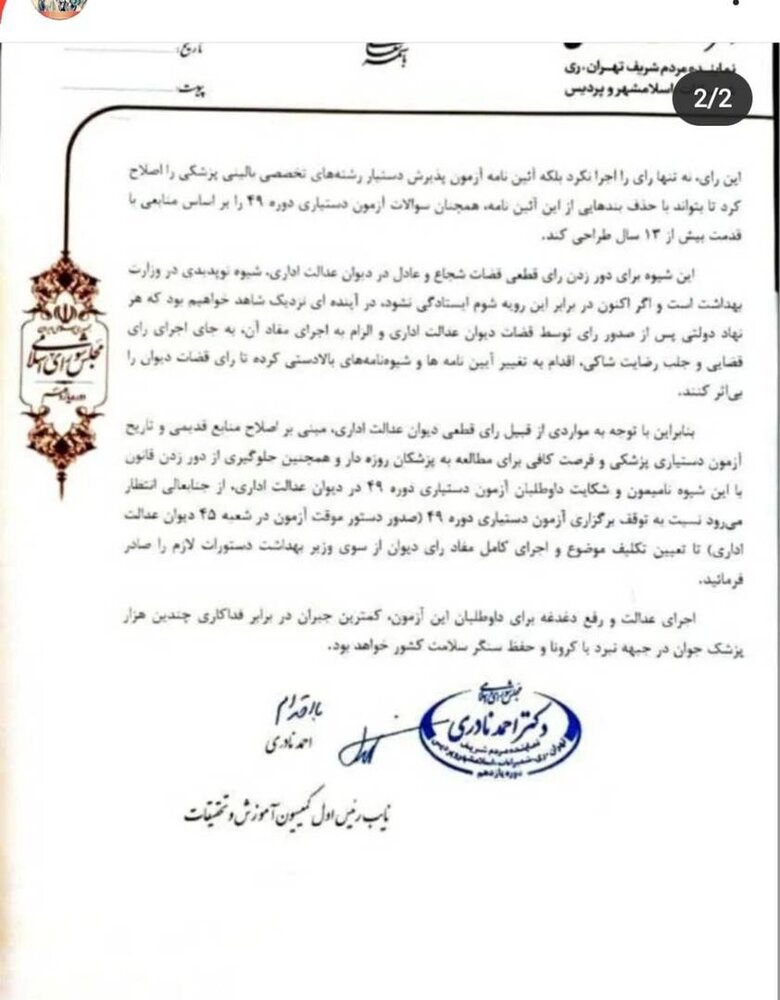 2/2
تاریخ:
نماینده مردم شریف تهران، ری
اسلامشهر و پردیس
پیوست:
این رای، نه تنها رای را اجرا نکرد بلکه آئین نامه آزمون پذیرش دستیار رشته‌های تخصصی بالینی پزشکی را اصلاح
کرد تا بتواند با حذف بندهایی از این آئین نامه، همچنان سوالات آزمون دستیاری دوره ۴۹ را بر اساس منابعی با
قدمت بیش از ۱۳ سال طراحی کند.
این شیوه برای دور زدن رای قطعی قضات شجاع و عادل در دیوان عدالت اداری، شیوه نوپدیدی در وزارت
بهداشت است و اگر اکنون در برابر این رویه شوم ایستادگی نشود، در آینده ای نزدیک شاهد خواهیم بود که هر
نهاد دولتی پس از صدور رای توسط قضات دیوان عدالت اداری و الزام به اجرای مفاد آن، به جای اجرای رای
قضایی و جلب رضایت شاکی، اقدام به تغییر آیین نامه ها و شیوه‌نامه‌های بالادستی کرده تا رای قضات دیوان را
بی‌اثر کنند.
بنابراین با توجه به مواردی از قبیل رای قطعی دیوان عدالت اداری، مبنی بر اصلاح منابع قدیمی و تاریخ
آزمون دستیاری پزشکی و فرصت کافی برای مطالعه به پزشکان روزه دار و همچنین جلوگیری از دور زدن قانون
با این شیوه نامیمون و شکایت داوطلبان آزمون دستیاری دوره ۴۹ در دیوان عدالت اداری، از جنابعالی انتظار
می‌رود نسبت به توقف برگزاری آزمون دستیاری دوره ۴۹ (صدور دستور موقت آزمون در شعبه ۴۵ دیوان عدالت
اداری) تا تعیین تکلیف موضوع و اجرای کامل مفاد رای دیوان از سوی وزیر بهداشت دستورات لازم را صادر
فرمائید.
اجرای عدالت و رفع دغدغه برای داوطلبان این آزمون، کمترین جبران در برابر فداکاری چندین هزار
پزشک جوان در جبهه نبرد با کرونا و حفظ سنگر سلامت کشور خواهد بود.
جمهوری اسلامی ایران
مجلس شورای اسلامی
دوره یازدهم
با احترام
احمد نادری
مجلس شورای اسلامی
دکتر احمد نادری
نماینده مردم شریف
تهران، ری، شمیرانات، اسلامشهر و پردیس
دوره یازدهم
نایب رئیس اول کمیسیون آموزش و تحقیقات